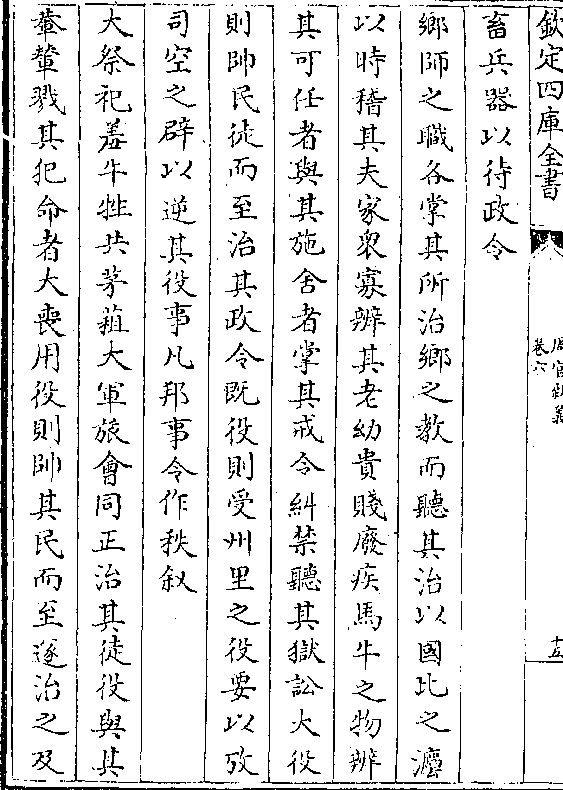 欽定四庫全書
周官新義
卷六
十五
畜兵器以待政令
鄉師之職各掌其所治鄉之教而聽其治以國比之灋
以時稽其夫家衆寡辨其老幼貴賤廢疾馬牛之物辨
其可任者與其施舍者掌其戒令糾禁聽其獄訟大役
則帥民徒而至治其政令既役則受州里之役要以攷
司空之辟以逆其役事凡邦事令作秩叙
大祭祀羞牛牲共茅蒩大軍旅會同正治其徒役與其
輂輦戮其犯命者大喪用役則帥其民而至遂治之及